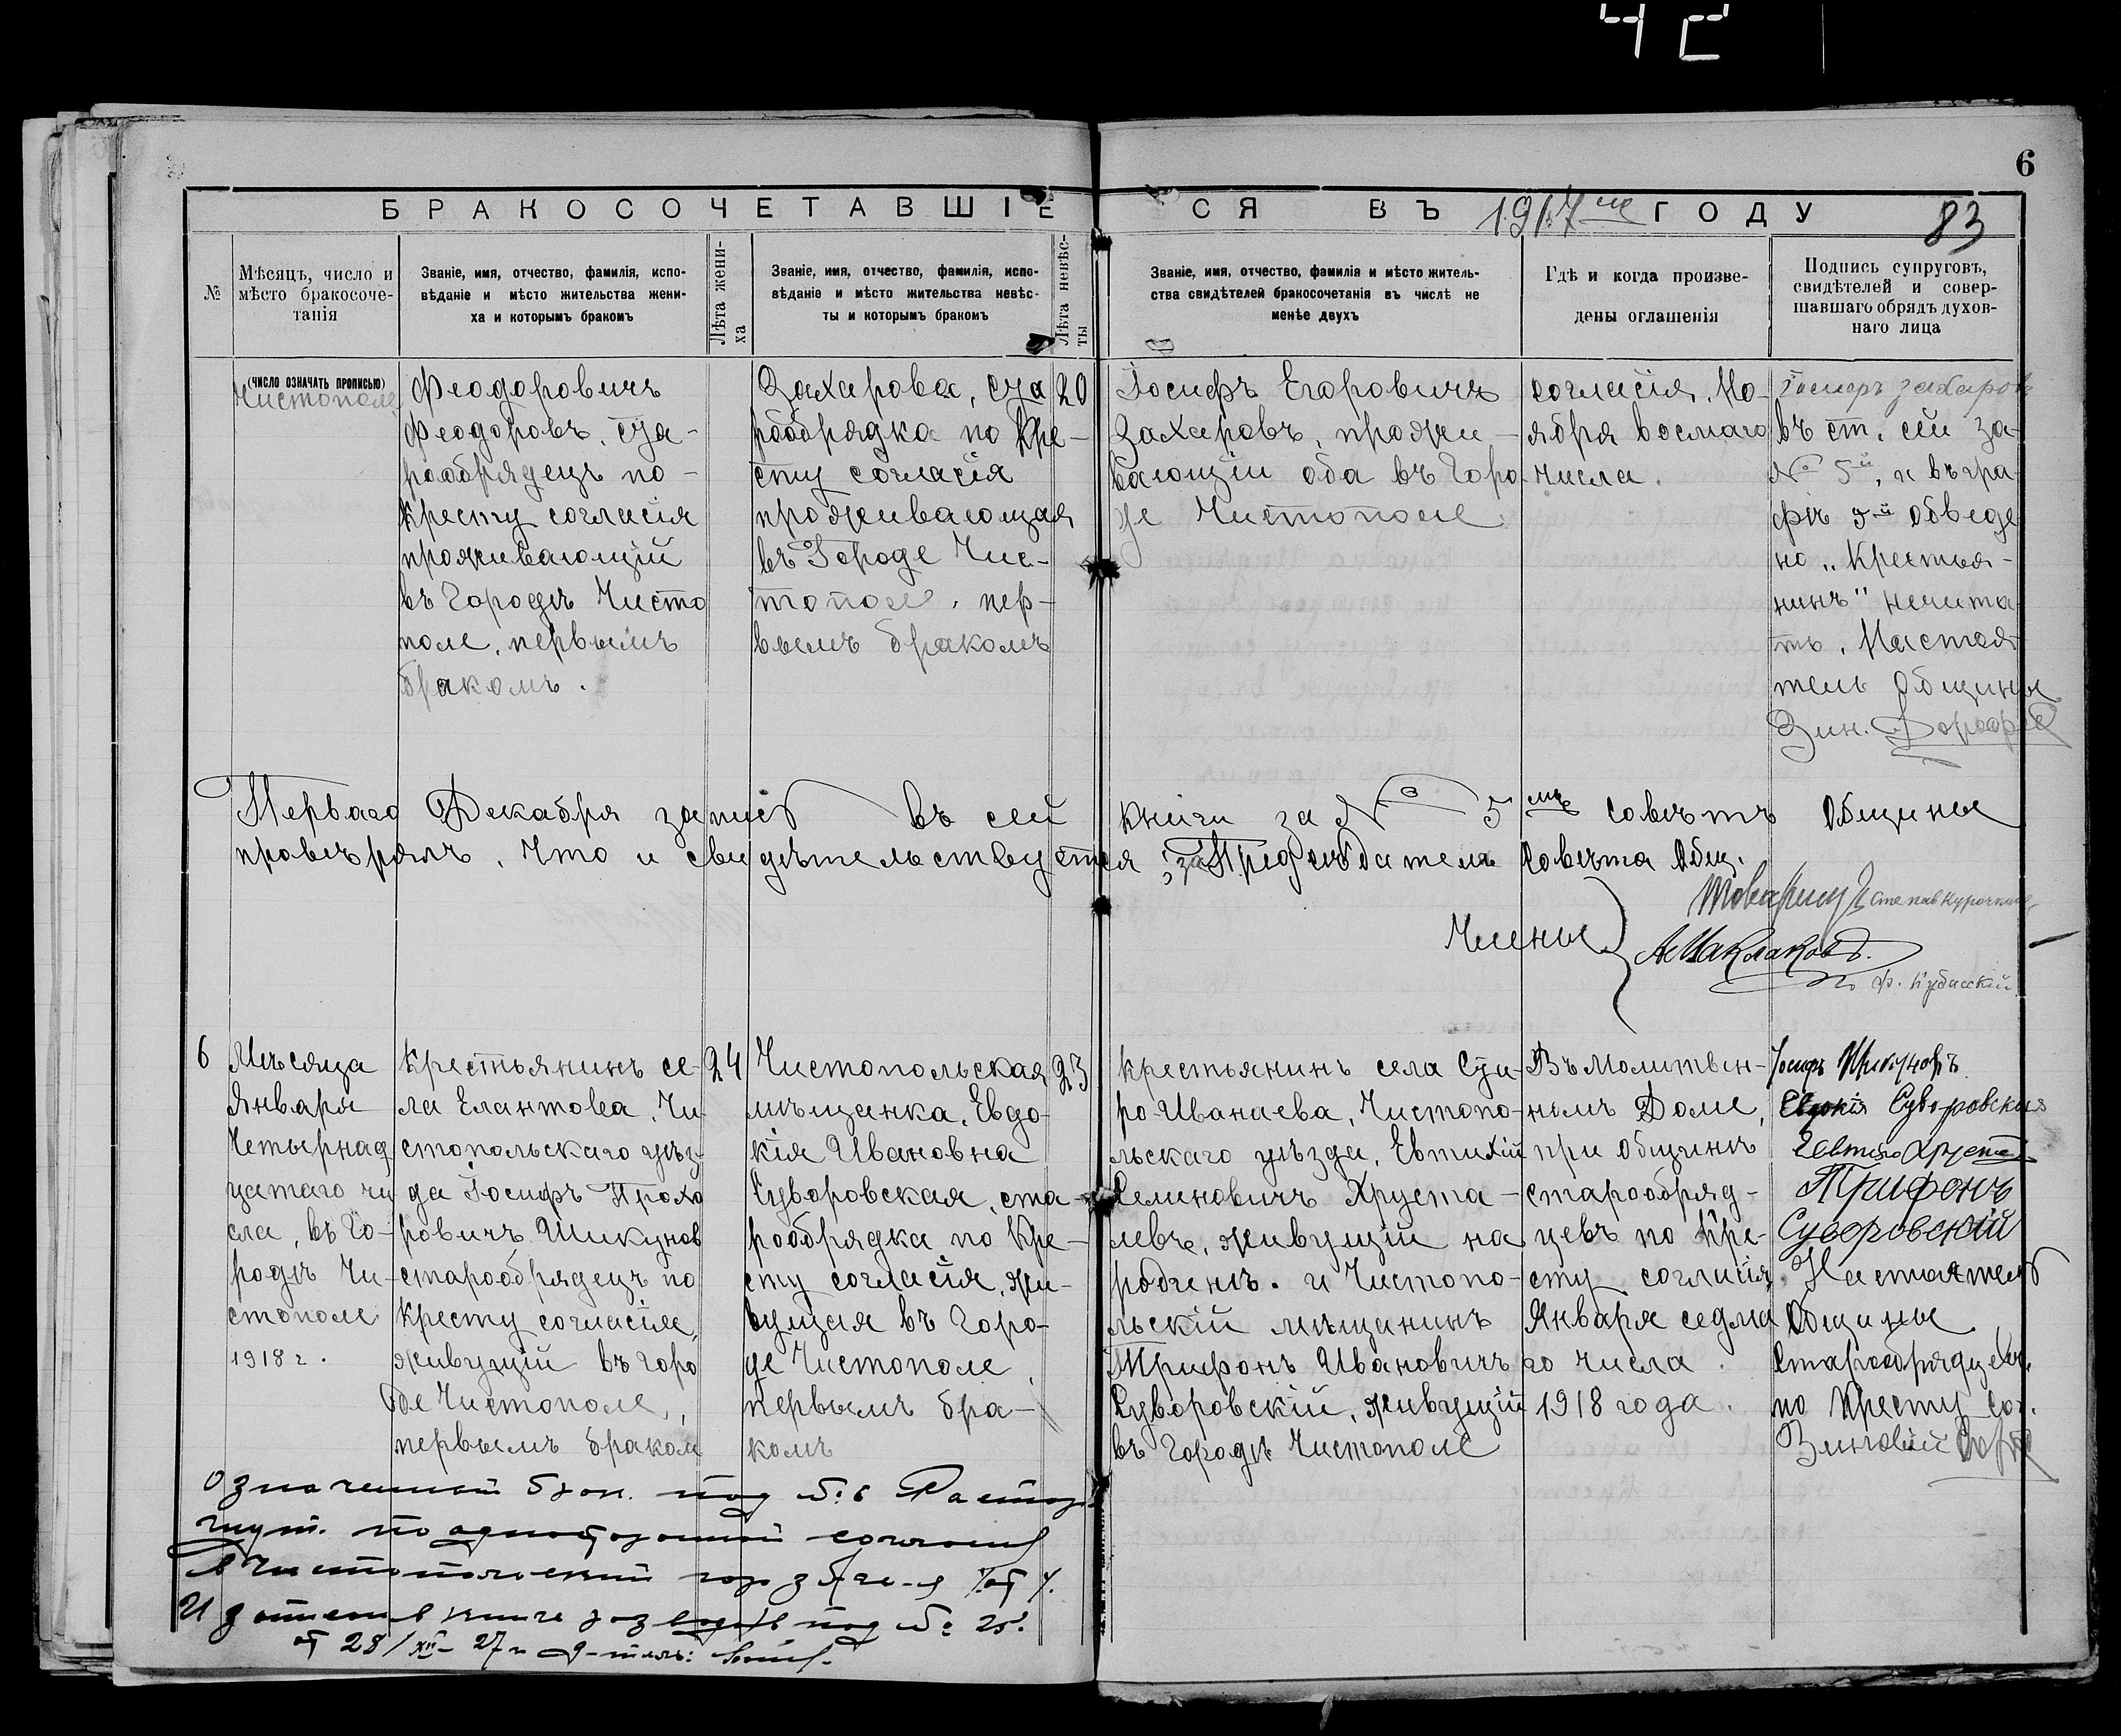 6
БРАКОСОЧЕТАВШІЕСЯ ВЪ 1917 ГОДУ
83
№
Мѣсяцъ, число и
мѣсто бракосоче-
танія
Званіе, имя, отчество, фамилія, испо-
вѣданіе и мѣсто жительства жени-
ха и которымъ бракомъ
Лѣта жени-
ха
Званіе, имя, отчество, фамилія, испо-
вѣданіе и мѣсто жительства невѣс-
ты и которымъ бракомъ
Лѣта невѣс-
ты
Званіе, имя, отчество, фамилія и мѣсто житель-
ства свидѣтелей бракосочетанія въ числѣ не
менѣе двухъ
Гдѣ и когда произве-
дены оглашенія
Подпись супруговъ,
свидѣтелей и совер-
шавшаго обрядъ духов-
наго лица
(ЧИСЛО ОЗНАЧАТЬ ПРОПИСЬЮ)
Чистополе
Феодоровичъ
Феодоровъ, ста-
рообрядецъ по-
Кресту согласія
проживающій
въ Городѣ Чисто
поле, первымъ
бракомъ.
Захарова, ста
рообрядка по Кре-
сту согласія
проживающая
въ Городе Чис-
тополе, пер-
вымъ бракомъ
20
Іосифъ Егоровичъ
Захаровъ, прожи-
вающіи оба въ Горо
де Чистополе
согласія, Но-
ября восмаго
числа.
захаров
въ ст. сей за
№ 5й, и въ гра
фѣ 9й обведе
но „Крестья-
нинъ" нечита
ть. Настоя
тель Общины
Зин.
Перваго Декабря запись въ сей книги за № 5мъ Совѣтъ Общины
провѣрялъ, что и свидѣтельствуется; за Предсѣдателя Совѣта Общ.
Товарищ Степан Курочкин
Члены
А Маклаковъ.
6
Мѣсяца
Января
Четырнад
цатаго чи
сла, въ Го-
родѣ Чи-
стополе
1918 г.
Крестьянинъ се-
ла Елантова, Чи-
стопольскаго уѣз-
да Іосифъ Прохо
ровичъ Шикунов
старообрядецъ по
Кресту согласія,
живущій въ горо
де Чистополе,
первымъ браком
24
Чистопольская
мѣщанка, Евдо-
кія Ивановна
Суворовская, ста-
рообрядка по Кре-
сту согласія, жи-
вущая въ Горо-
де Чистополе,
первымъ бра-
комъ
23
крестьянинъ села Ста-
ро-Иванаева, Чистопо-
льскаго уѣзда, Евтихій
Семиновичъ Хруста-
левъ, живущій на
родинѣ. и Чистопо-
льскій мѣщанинъ
Трифонъ Ивановичъ
Суворовскій, живущій
въ Городѣ Чистополе
Въ Молитвен-
номъ Доме,
при Общинѣ
старообряд-
цевъ по Кре-
сту согласія,
Января седма
го числа.
1918 года.
Іосифъ Шикуновъ
Евдокія Суворовская
Трифонъ
Суворовскій
Настоятель
Общины
Старообрядцевъ
по Кресту сог.
Зиновій
Означенный брак. под №: 6 Расторг
гнут. по односторонней
в Чистопольский
И записан в книге разводов под № 25.
от 28/XII-27 г